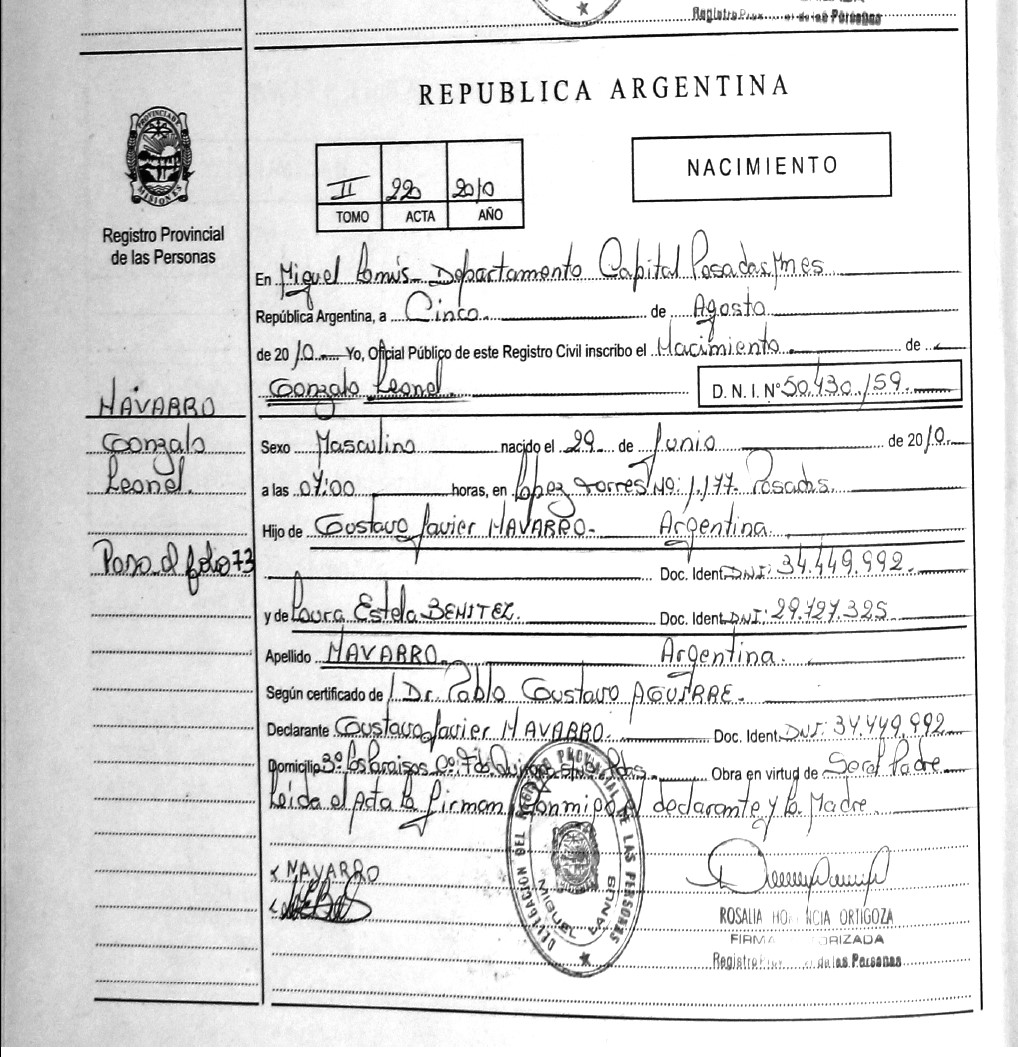 Registro P... de las Personas
REPUBLICA ARGENTINA
PROVINCIA DE MISIONES
Registro Provincial
de las Personas
II 22 2010
TOMO ACTA AÑO
NACIMIENTO
En Miguel Lanús - Departamento Capital Posadas, Mnes
República Argentina, a Cinco de Agosto
de 2010 Yo, Oficial Público de este Registro Civil inscribo el Nacimiento de
Gonzalo Leonel D. N. I. Nº 50.430.159
NAVARRO
Gonzalo
Leonel.
Pasa al folio 73
Sexo Masculino nacido el 29 de Junio de 2010
a las 07:00 horas, en López Torres Nº: 1.177- Posadas.
Hijo de Gustavo Javier NAVARRO- Argentina.
Doc. Ident. DNI: 34.449.992.
y de Laura Estela BENITEZ. Doc. Ident. DNI: 29.727.325
Apellido NAVARRO. Argentina.
Según certificado de Dr. Pablo Gustavo AGUIRRE.
Declarante Gustavo Javier NAVARRO. Doc. Ident. DNI: 34.449.992
Domicilio Bº. Los Paraisos Obra en virtud de Ser el Padre
Leída el Acta la firman conmigo el declarante y la Madre.
NAVARRO
DELEGACION DEL REGISTRO PROVINCIAL DE LAS PERSONAS
MIGUEL LANUS
ROSALIA HO NCIA ORTIGOZA
FIRMA ORIZADA
Registro de las Personas